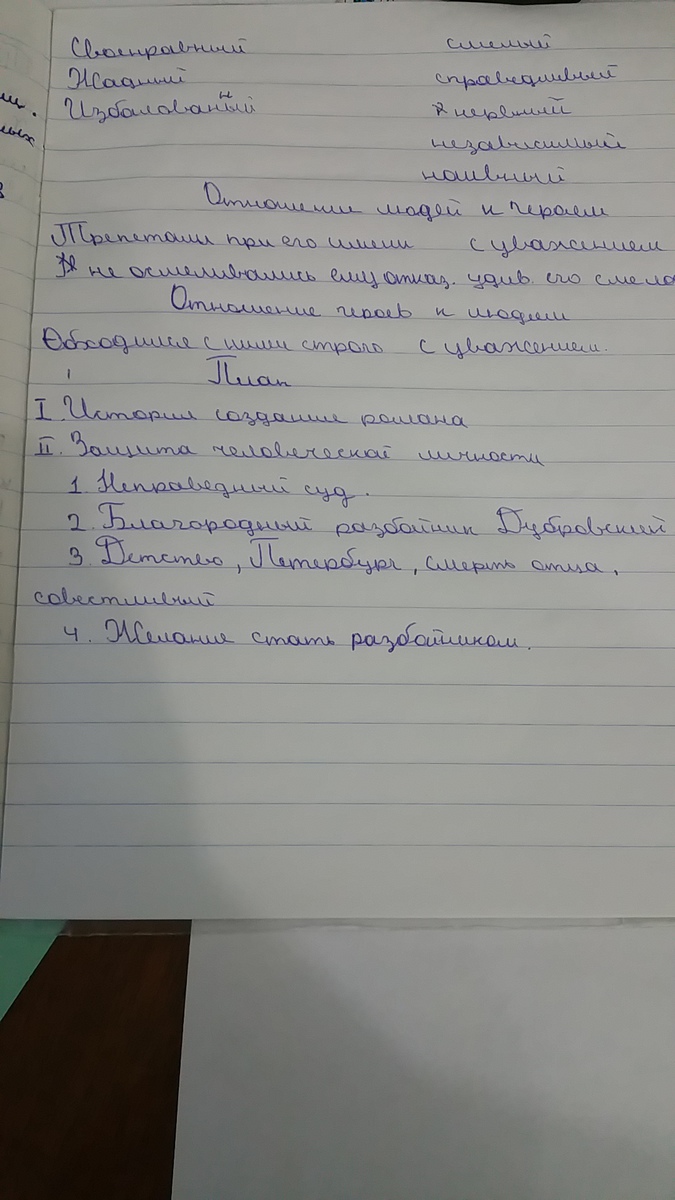 Своенравный смелый
Жадный справедливый
Избалованный нервный
независимый
наивный
Отношение людей к героем
Трепетали при его имени с уважением
не осмеливались ему отказ. удив. его смело
Отношение героев к людям
Обходился с ними строго с уважением.
План
I. История создание романа
II. Защита человеческой личности
1. Неправедный суд.
2. Благородный разбойник Дубровский
3. Детство, Петербург, смерть отца,
совестливый
4. Желание стать разбойником.